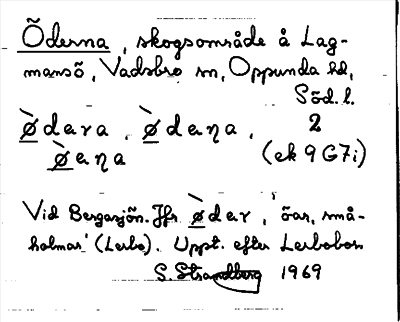 Öderna, skogsområde å Lag-
mansö, Vadsbro sn, Oppunda hd,
Söd. l.
2
ø̀dara, ø̀dena,
ø̀ena (ek 9 G7i)
Vid Bergasjön. Jfr ø̀der, 'öar, små-
holmar' (Lerbo). Uppt. efter Lerbobor
S. Strandberg 1969